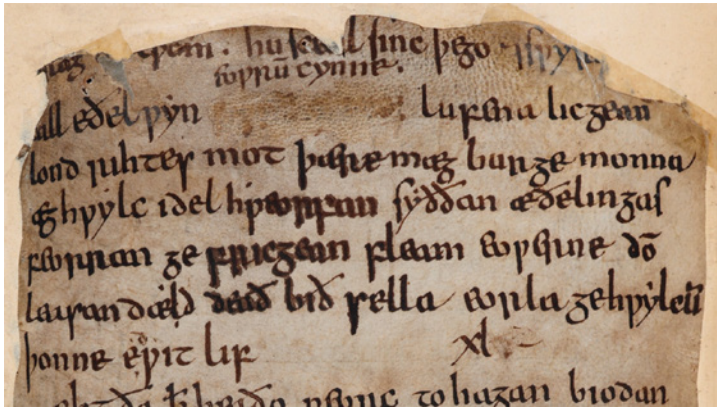 hu sinc þego
eoƿrū cynne.
eall eðel ƿyn lufena licgean
lond rihtes mot þære mæg burge monna
æghƿylc idel hƿeorfan syððan æðelingas
feorran ge fricgean fleam eoƿerne dō
leasan dæd deað bið sella eorla gehƿylcū
þonne edƿit lif xl
heht ða ꝥ heaðo ƿeorc to hagan biodan